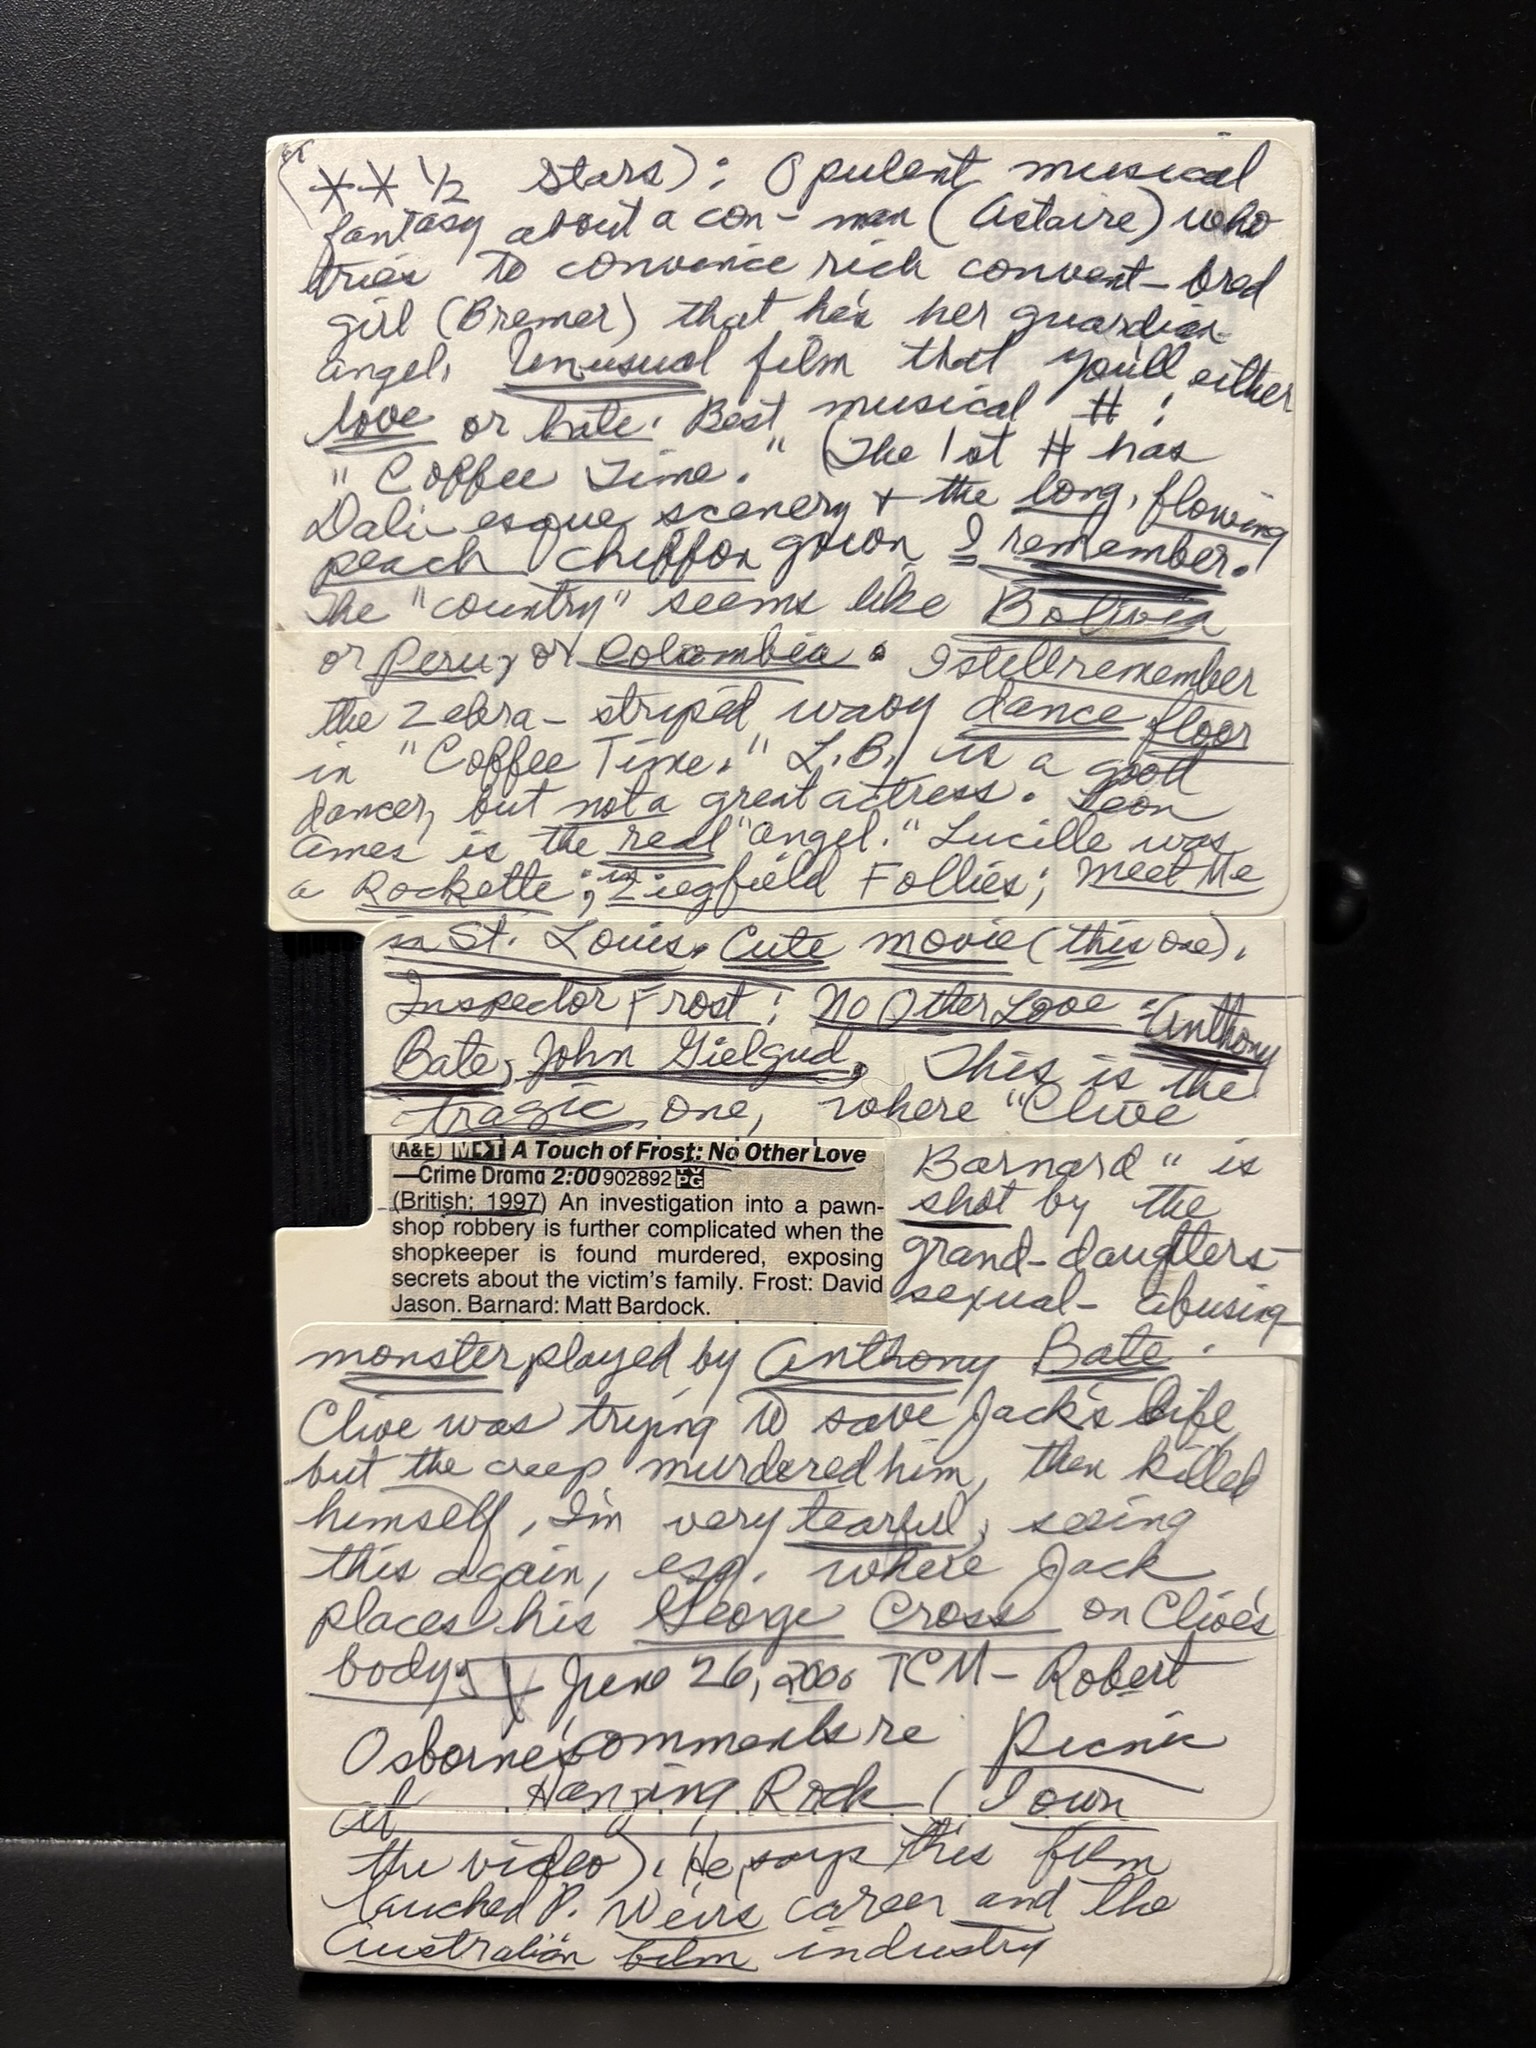 ** 1/2 stars): Opulent musical
fantasy about a con-man (Astaire) who
tries to convince rich convent-bred
girl (Bremer) that he's her guardian
angel. Unusual film that you'll either
love or hate. Best musical #:
"Coffee Time." (The 1st # has
Dali-esque scenery + the long, flowing
peach chiffon gown I remember.
The "country" seems like Bolivia
or Peru, or Colombia. I still remember
the zebra-striped wavy dance floor
in "Coffee Time." L.B. is a good
dancer, but not a great actress. Leon
Ames is the real "angel." Lucille was
a Rockette; in Ziegfield Follies; Meet Me
in St. Louis. Cute movie (this one).
Inspector Frost: No Other Love: (Anthony
Bate, John Gielgud, This is the
tragic one, where "Clive
A&E A Touch of Frost: No Other Love
—Crime Drama 2:00 902892 PG
(British; 1997) An investigation into a pawn-
shop robbery is further complicated when the
shopkeeper is found murdered, exposing
secrets about the victim's family. Frost: David
Jason. Barnard: Matt Bardock.
Barnard" is
shot by the
grand-daughters-
sexual-abusing-
monster played by Anthony Bate.
Clive was trying to save Jack's life,
but the creep murdered him, then killed
himself, I'm very tearful, seeing
this again, esp. where Jack
places his George Cross on Clive's
body. June 26, 2000 TCM - Robert
Osborne's comments re Picnic
at Hanging Rock (I own
the video). He says this film
launched P. Weir's career and the
Australian film industry